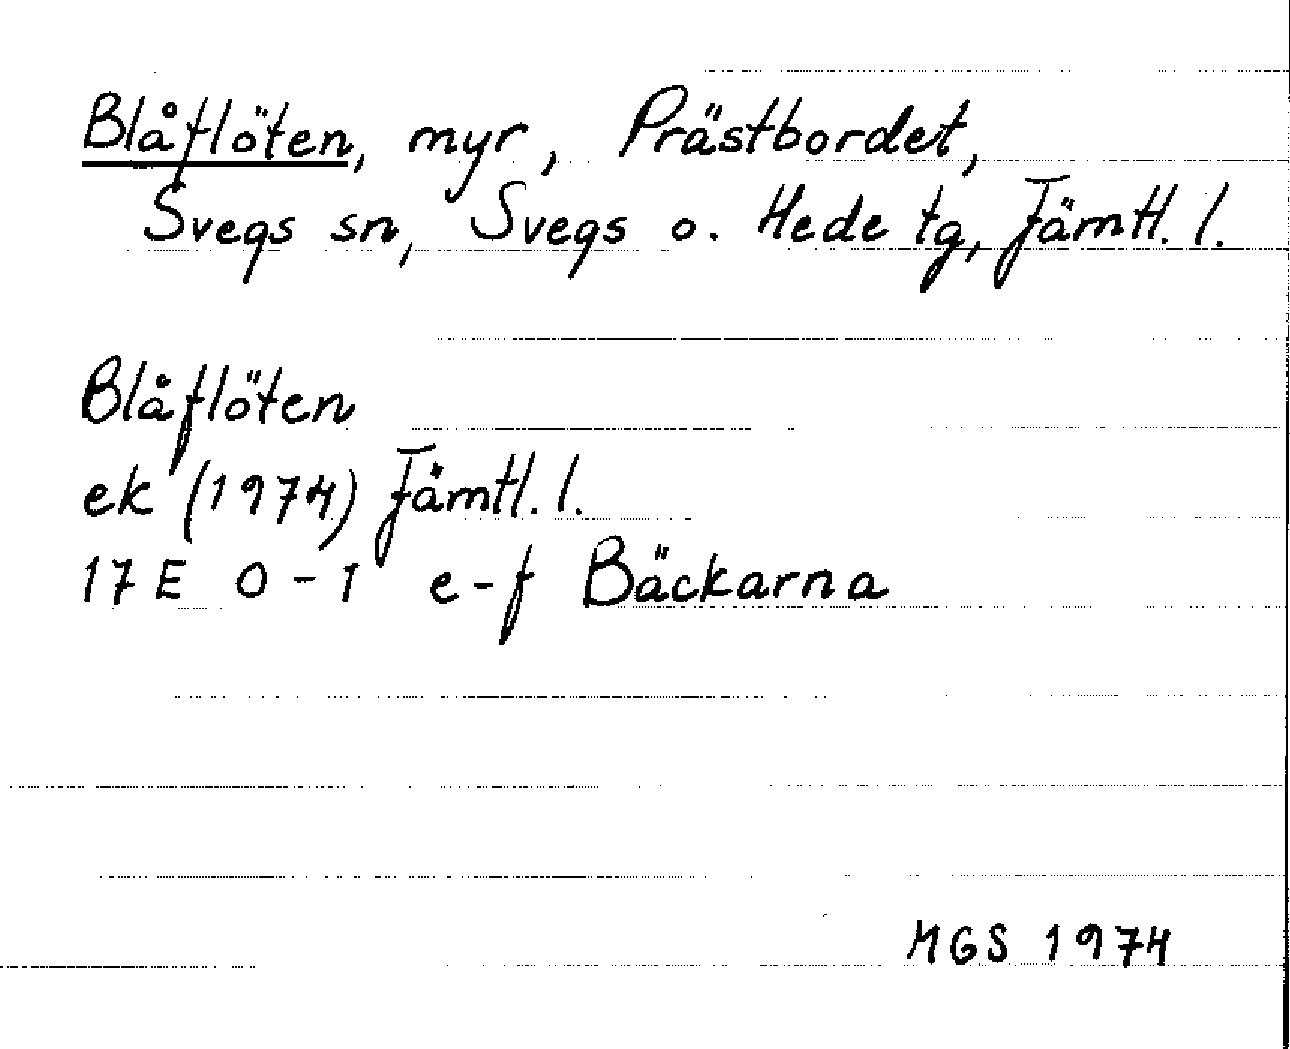 Blåflöten, myr, Prästbordet,
Svegs sn, Svegs o. Hede tg, Jämtl. l.
Blåflöten
ek (1974) Jämtl. l.
17 E 0-1 e-f Bäckarna
MGS 1974